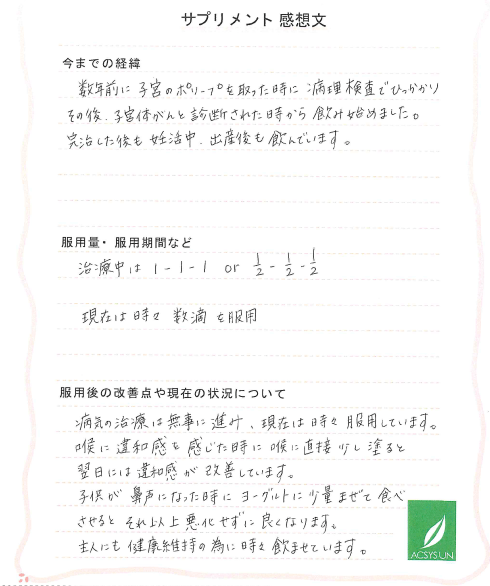 サプリメント 感想文
今までの経緯
数年前に子宮のポリープを取った時に 病理検査でひっかかり
その後、子宮体がんと診断された時から飲み始めました。
完治した後も 妊活中、出産後も飲んでいます。
服用量・服用期間など
治療中は 1-1-1 or 1/2-1/2-1/2
現在は時々 数滴 を服用
服用後の改善点や現在の状況について
病気の治療は無事に進み、現在は時々服用しています。
喉に違和感を感じた時に喉に直接少し塗ると
翌日には違和感が改善しています。
子供が鼻声になった時にヨーグルトに少量まぜて食べ
させると それ以上悪化せずに良くなります。
主人にも健康維持の為に時々飲ませています。
ACSYSUN